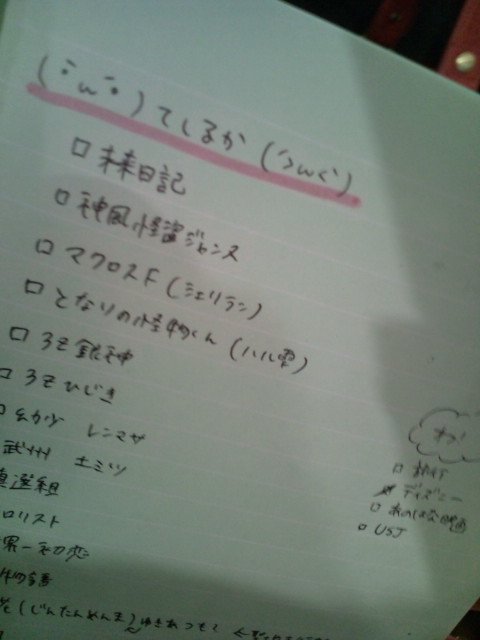 (･ω･)てしるか(´ω`)
□ 未来日記
□ 神風怪盗ジャンヌ
□ マクロスF(シェリラン)
□ となりの怪物くん(ハル雫)
□ 3Z銀神
□ 3Zひじき
レンマサ
武州 土ミツ
真選組
ロリスト
物語
(じんたんめんま)
わ!
□ 旅行
ディズニー
□ あのはな映画
□ USJ